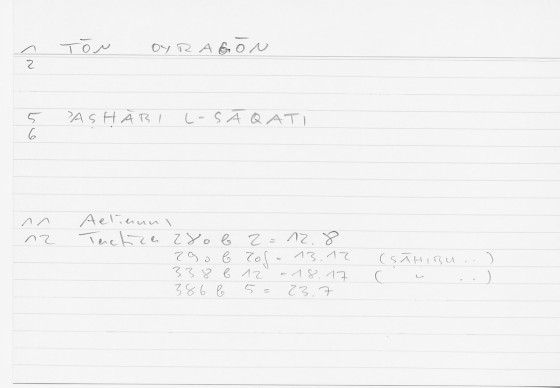 1 TŌN OYRAGŌN
2
5 ʾAṢḤĀBI L-SĀQATI
6
11 Aelianus
12 Tactica 280 b 2 = 12.8
290 b 20f - 13.12 (ṢĀḤIBU ..)
338 b 12 - 18.17 ( " ..)
386 b 5 = 23.7